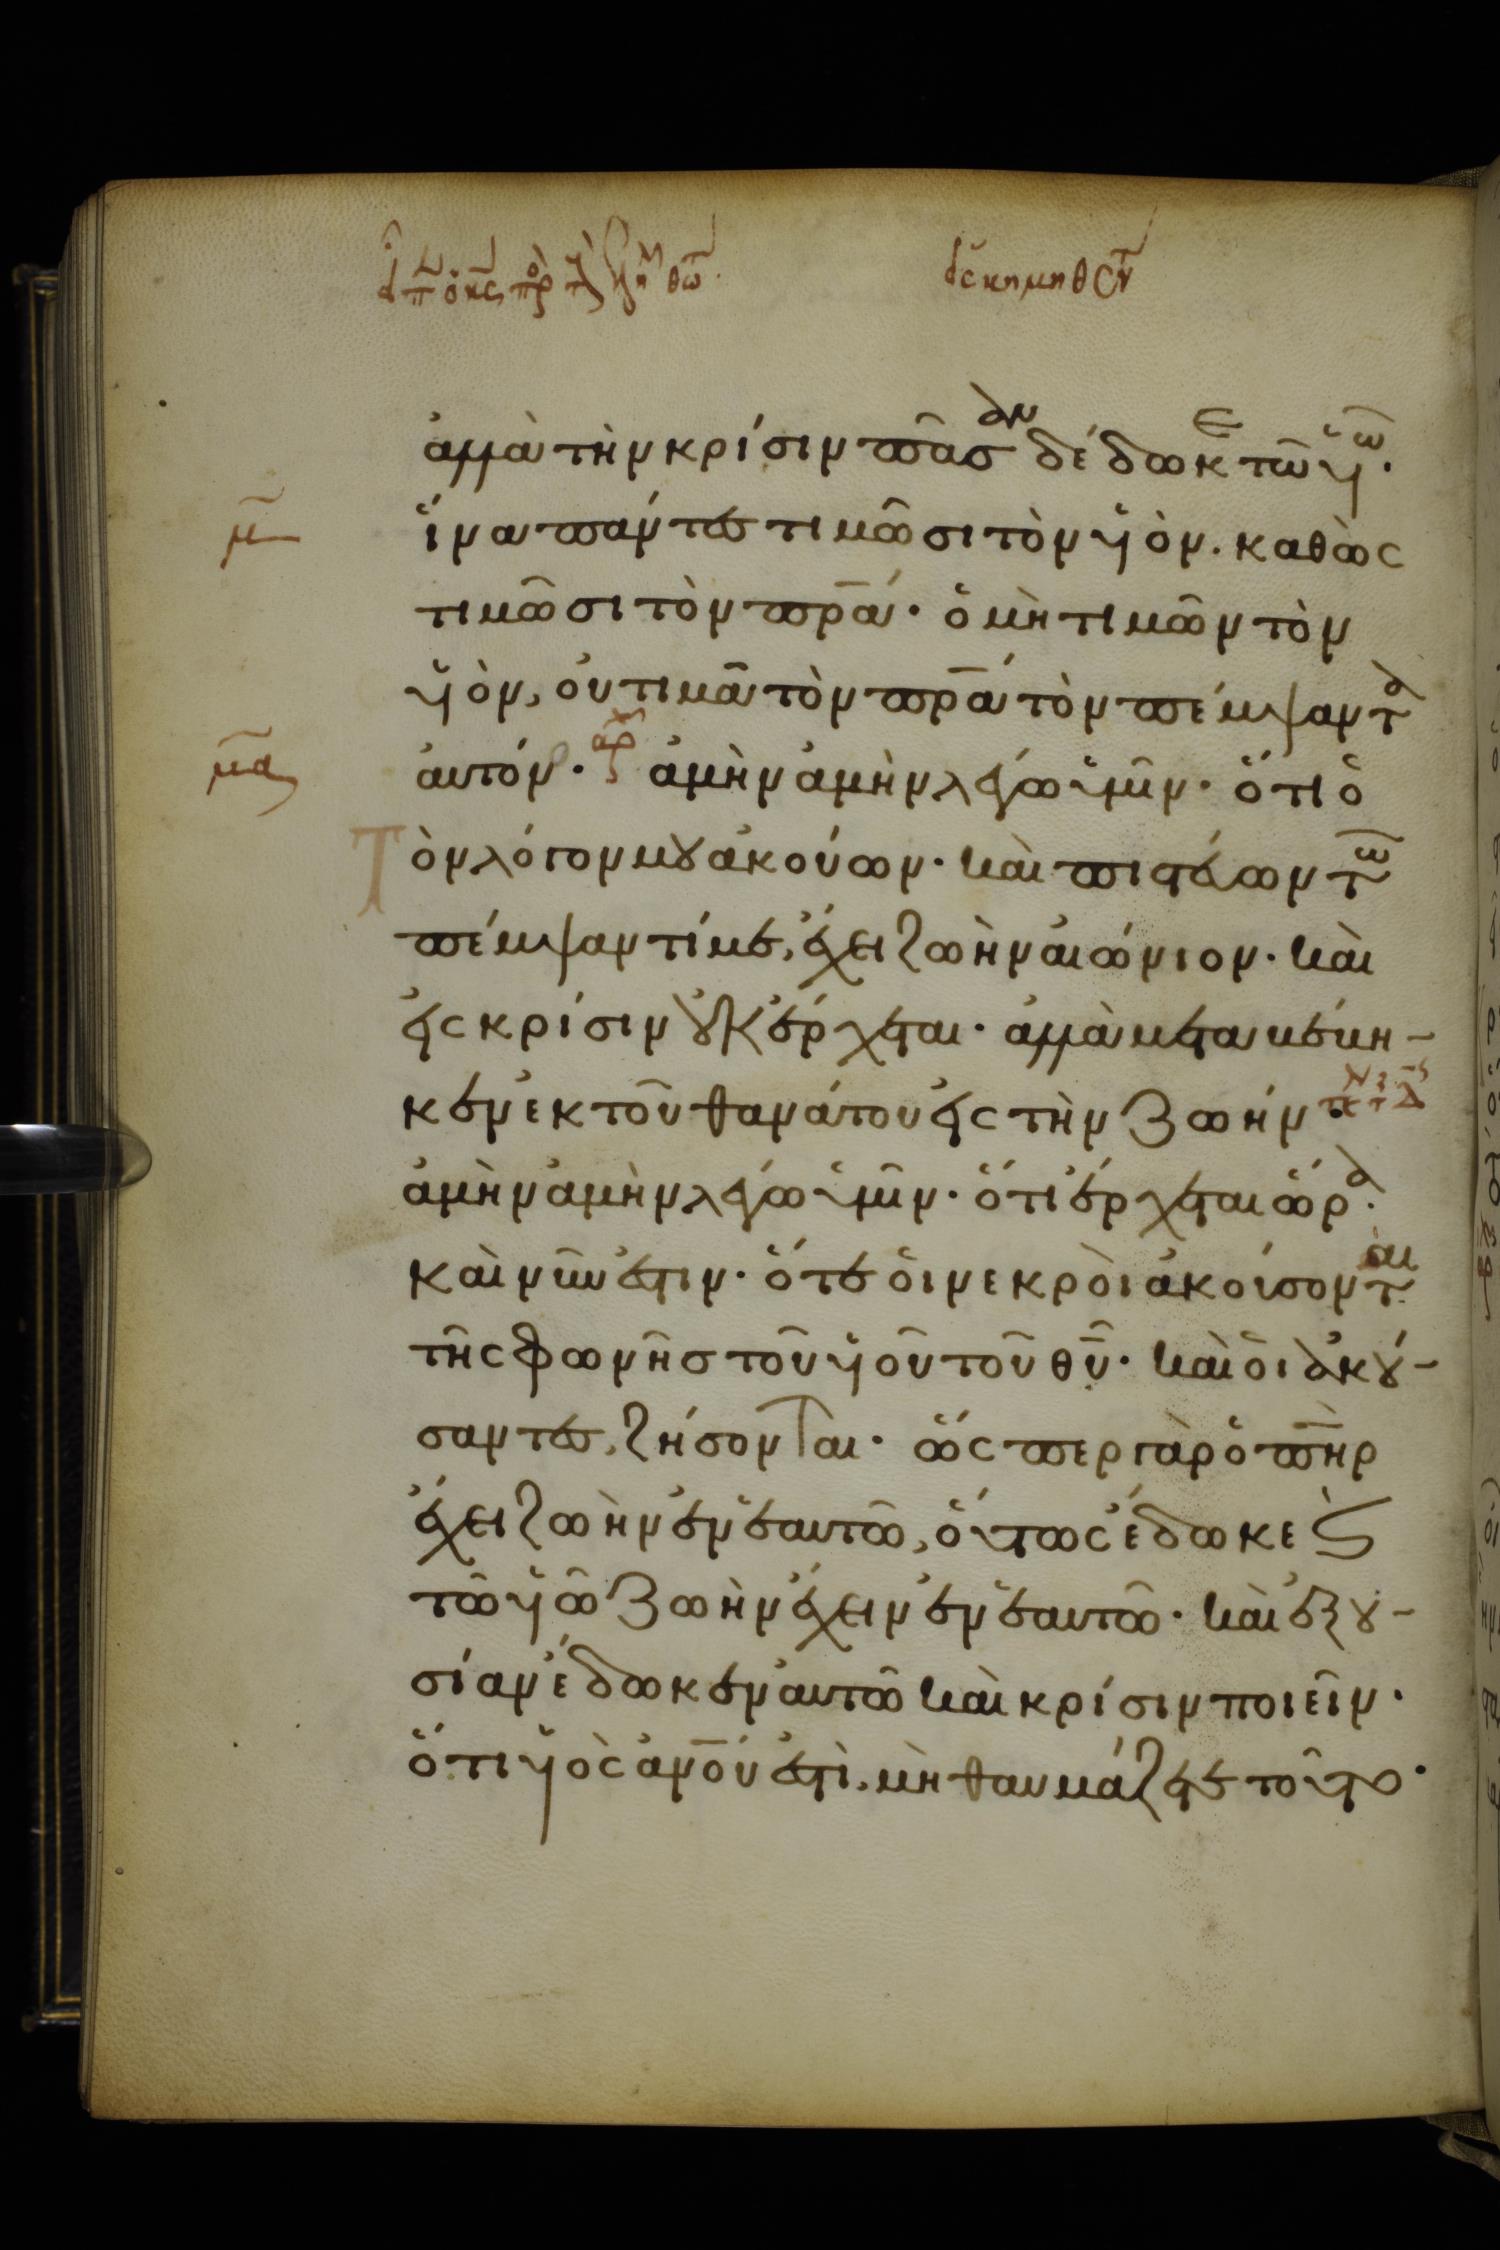 ἀλλὰ τὴν κρίσιν πᾶσαν δέδωκε τῶ ὑῶ·
ἵνα πάντες τιμῶσι τὸν ὑὸν. καθὼς
τιμῶσι τὸν πρ̅α· ὁ μὴ τιμῶν τὸν
ὑὸν, οὐ τιμᾶ τὸν πρ̅α τὸν πέμψαντα
αὐτόν· ἀμὴν ἀμὴν λέγω ὑμῖν· ὅτι ὁ
Τὸν λόγον μου ἀκούων· καὶ πιστεύων τῶ
πέμψαντί με, ἔχει ζωὴν αἰώνιον· καὶ
εἰς κρίσιν οὐκ ἔρχεται· ἀλλὰ μεταβέβη-
κεν ἐκ τοῦ θανάτου εἰς τὴν ζωήν·
ἀμὴν ἀμὴν λέγω ὑμῖν· ὅτι ἔρχεται ὥρα·
καὶ νῦν ἐστιν· ὅτε οἱ νεκροὶ ἀκούσονται
τῆς φωνῆς τοῦ ὑοῦ τοῦ θ̅υ· καὶ οἱ ἀκού-
σαντες, ζήσονται· ὥσπερ γὰρ ὁ π̅η̅ρ
ἔχει ζωὴν ἐν ἑαυτῶ, οὕτως ἔδωκε καὶ
τῶ ὑῶ ζωὴν ἔχειν ἐν ἑαυτῶ· καὶ ἐξου-
σίαν ἔδωκεν αὐτῶ καὶ κρίσιν ποιεῖν·
ὅτι ὑὸς ἀν̅ο̅υ ἐστὶ, μὴ θαυμάζετε τοῦτο·
μ̅
μ̅α̅